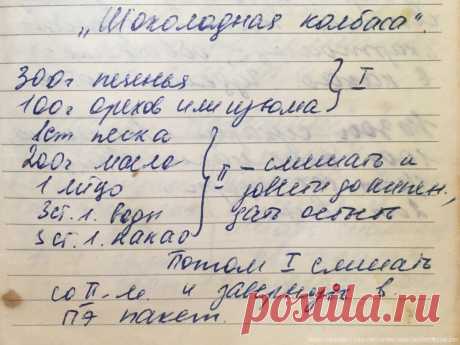 „Шоколадная колбаса".
300г печенья
100г орехов или изюма } I
1ст песка
200г масло
1 яйцо
3 ст. л. воды
3 ст. л. какао
II – смешать и
довести до кипен.,
дать остыть
Потом I смешать
со II-м. и завернуть в
ПЭ пакет.
postila.ru